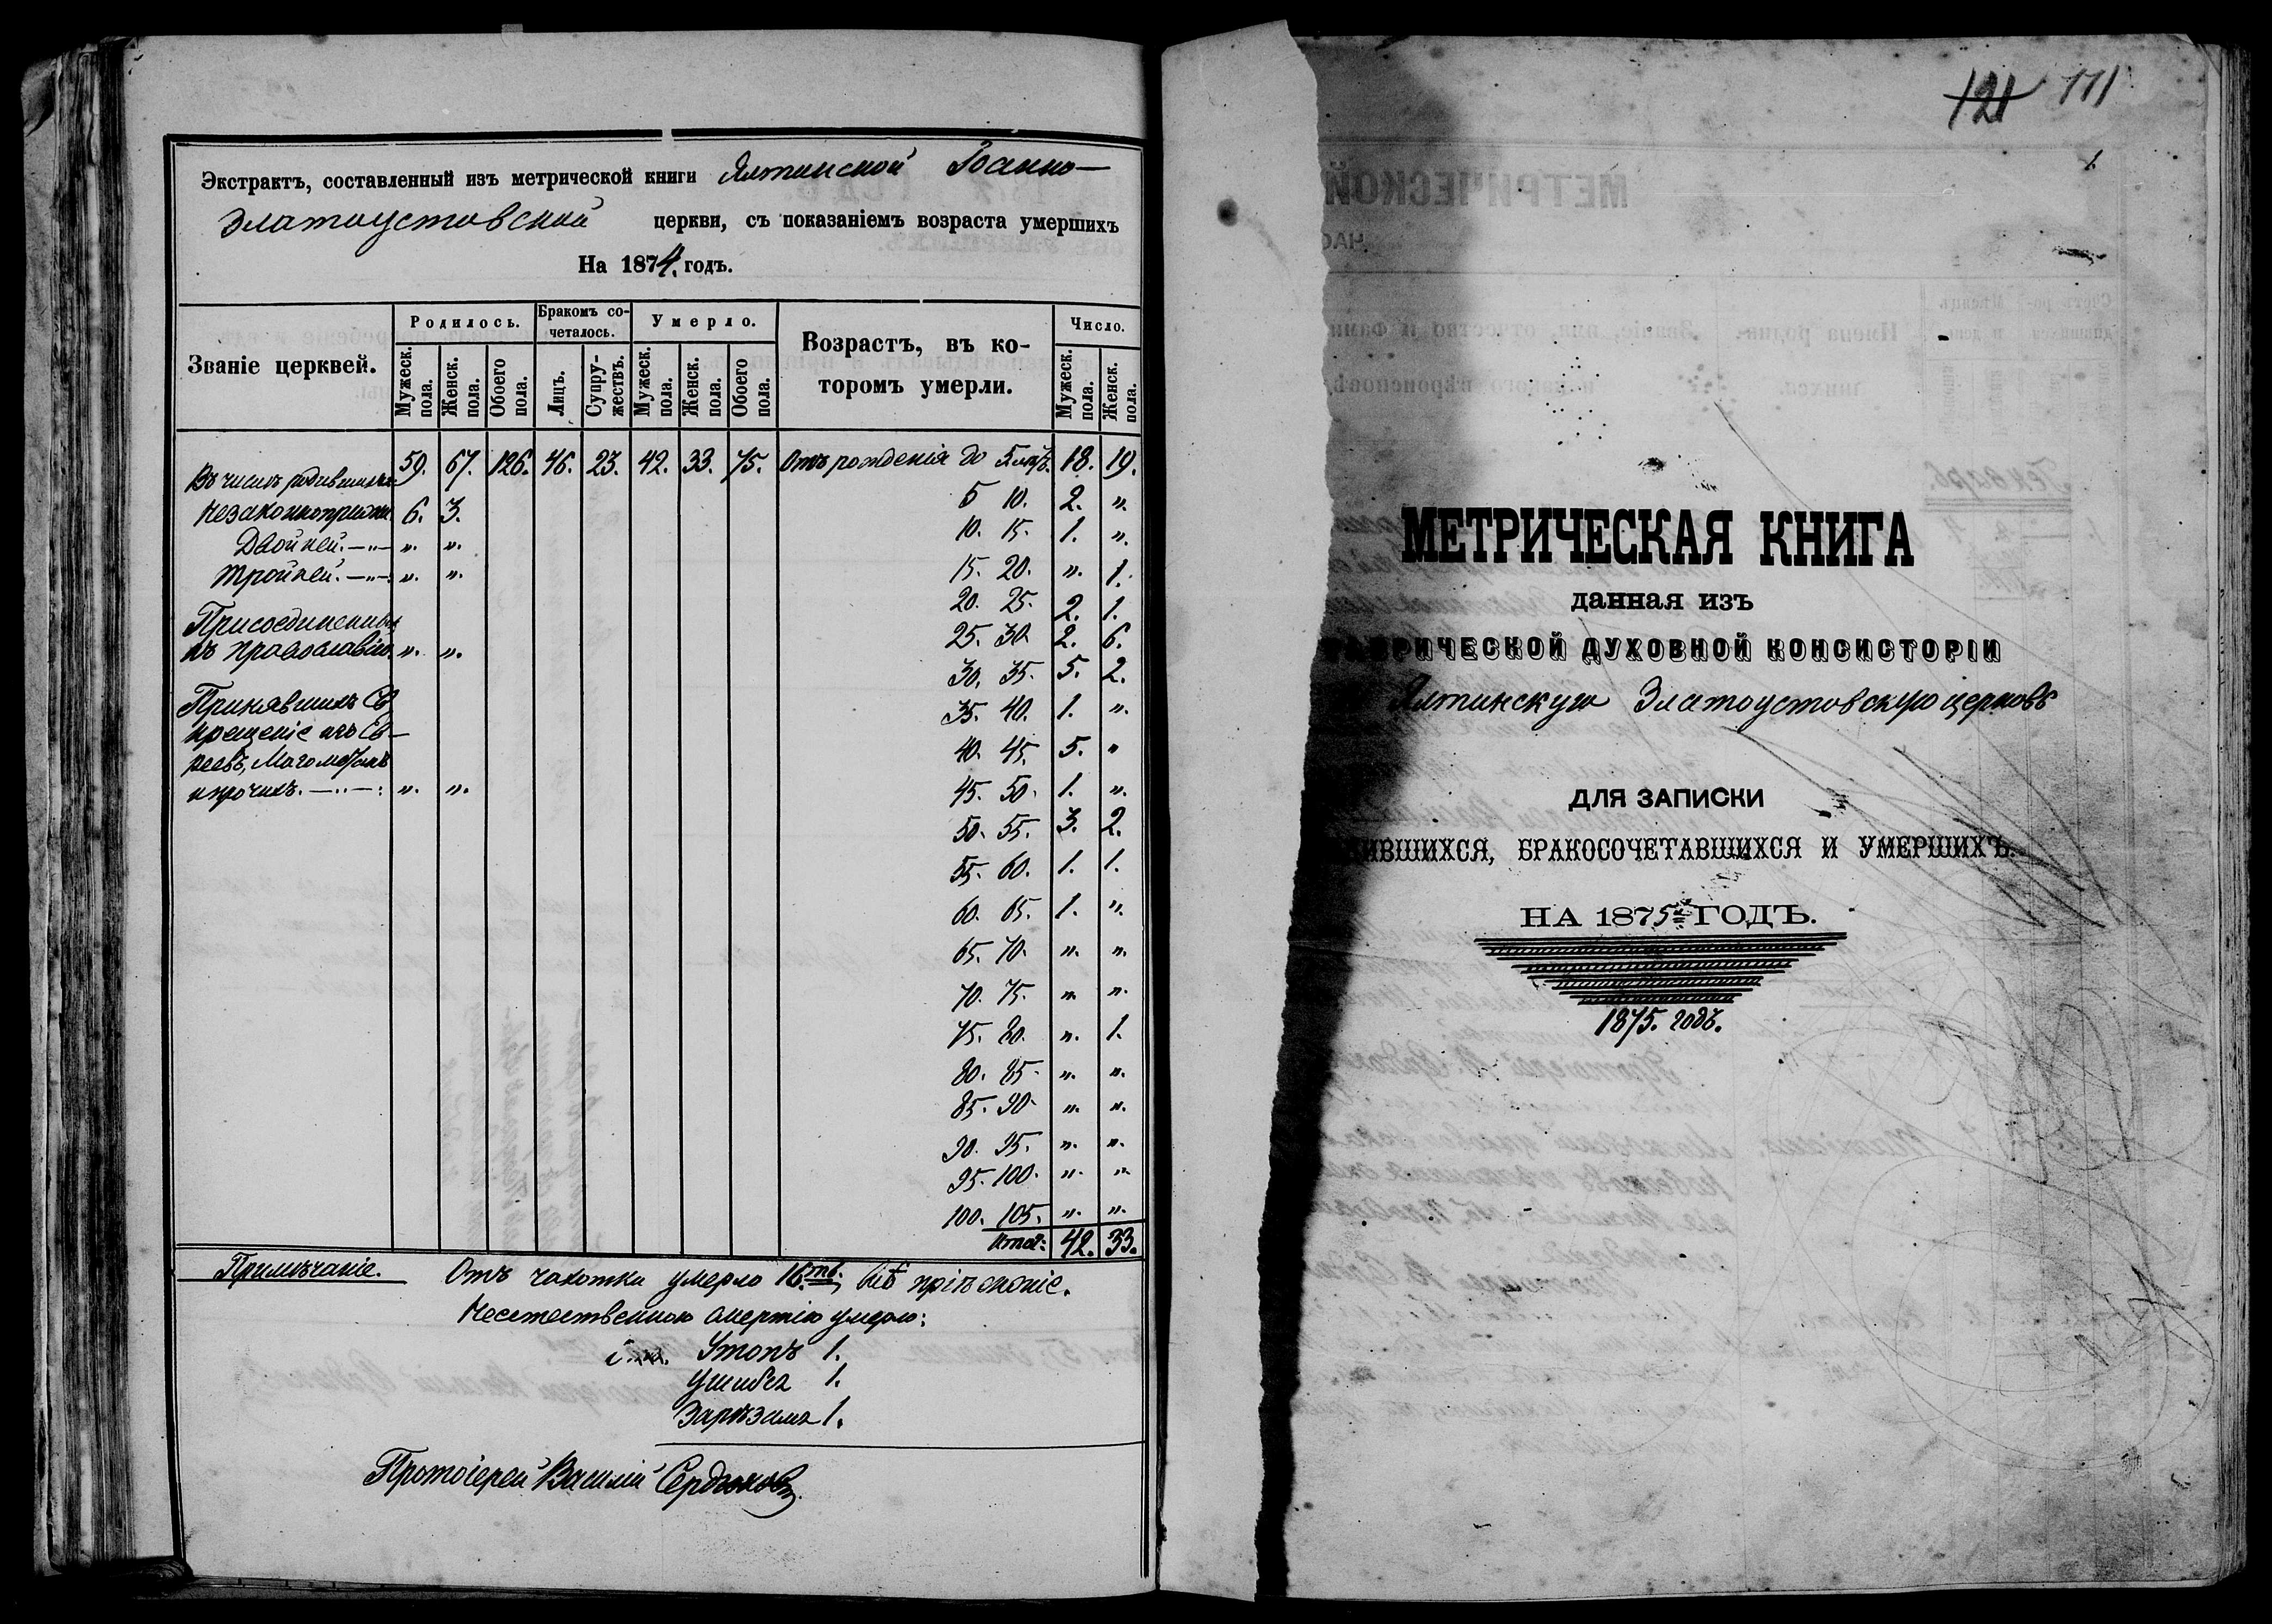 Экстрактъ, составленный изъ метрической книги Ялтинской Іоанно-
Златоустовской церкви, съ показаніемъ возраста умершихъ
На 1874. годъ.
Званіе церквей.
Родилось.
Бракомъ со-
четалось.
Умерло.
Возрастъ, въ ко-
торомъ умерли.
Число.
Мужеск. пола.
Женск. пола.
Обоего пола.
Лицъ.
Супружествъ.
Мужеск. пола.
Женск. пола.
Обоего пола.
Мужеск. пола.
Женск. пола.
59. 67. 126. 46. 23. 42. 33. 75. Отъ рожденія до 5 лѣтъ. 18. 19.
Въ числѣ родившихся
незаконнорожд. 6. 3.
Двойней. —"— ". ".
Тройней. —"— ". ".
Присоединенныхъ
къ православію. ". ".
Принявшихъ Св.
крещеніе изъ Ев-
реевъ, Магометанъ
и прочихъ. —..—: ". ".
5 10. 2. ".
10. 15. 1. ".
15. 20. ". 1.
20. 25. 2. 1.
25. 30. 2. 6.
30. 35. 5. 2.
35. 40. 1. ".
40. 45. 5. "
45. 50. 1. ".
50. 55. 3. 2.
55. 60. 1. 1.
60. 65. 1. ".
65. 70. ". ".
70. 75. ". ".
75. 80. ". 1.
80. 85. ". ".
85. 90. ". ".
90. 95. ". ".
95. 100. ". ".
100. 105. ". ".
Итого: 42. 33.
Примѣчаніе. Отъ чахотки умерло 16.ть.
Неестественною смертію умерло:
Утопъ 1.
Ушибся 1.
Зарѣзана 1.
Протоіерей Василій Сердюковъ.
121 171
1.
МЕТРИЧЕСКАЯ КНИГА
данная изъ
ТАВРИЧЕСКОЙ ДУХОВНОЙ КОНСИСТОРІИ
Ялтинскую Златоустовскую церковь
ДЛЯ ЗАПИСКИ
ИВШИХСЯ, БРАКОСОЧЕТАВШИХСЯ И УМЕРШИХЪ.
НА 1875й ГОДЪ.
1875. годъ.